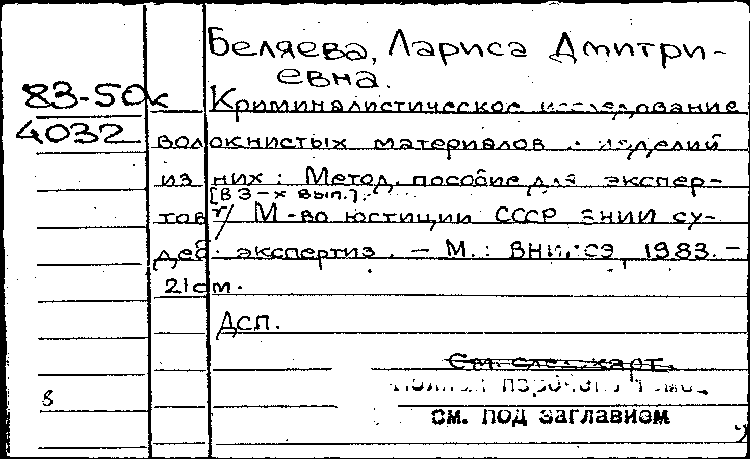 Беляева, Лариса Дмитри-
евна.
83-50к
Криминалистическое исследование
4032
волокнистых материалов и изделий
из них: Метод. пособие для экспер-
[В 3-х вып.].
тов / М-во юстиции СССР. ВНИИ су-
деб. экспертиз. - М.: ВНИИСЭ, 1983. -
21см.
Дсп.
См. след. карт.
см. под заглавием
8